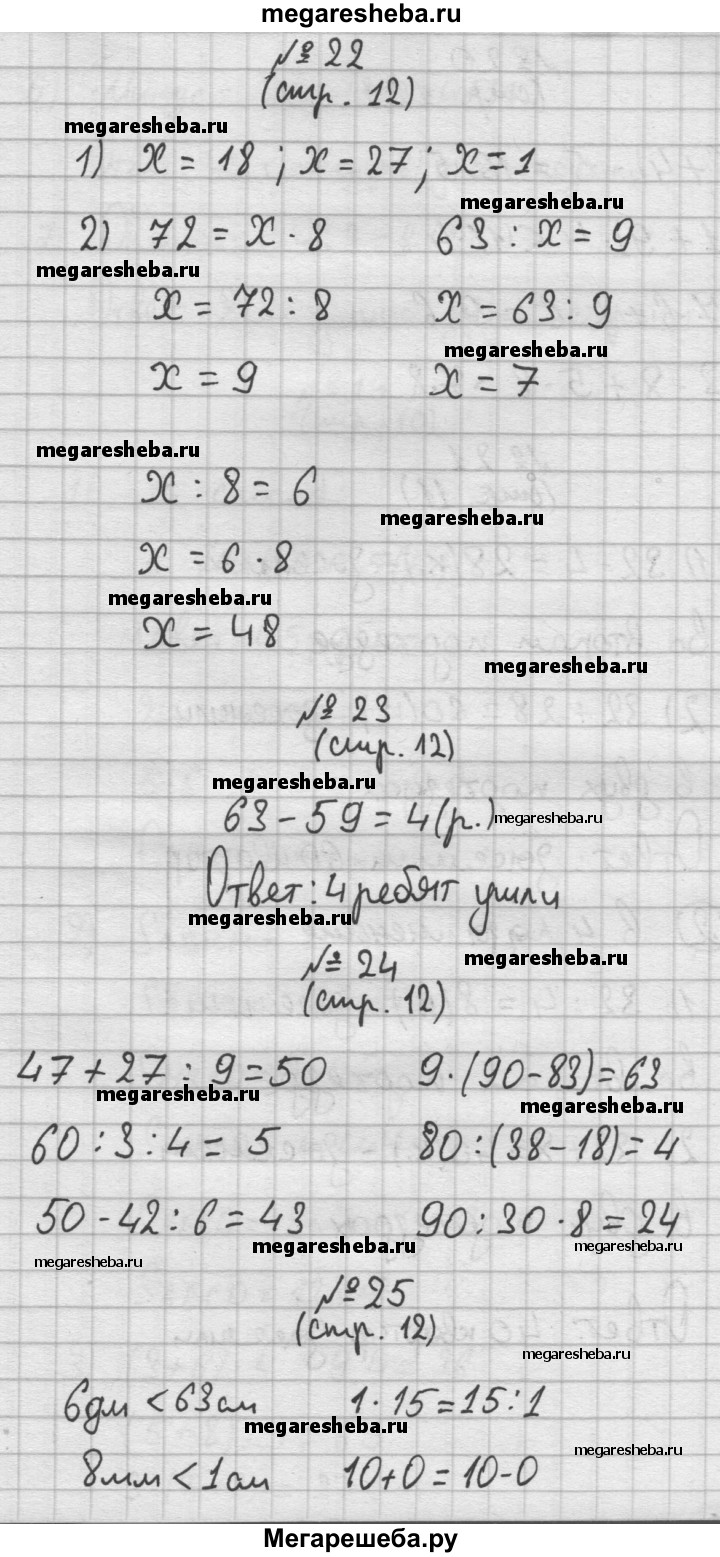 megaresheba.ru
№ 22
(стр. 12)
megaresheba.ru
1) x = 18 ; x = 27 ; x = 1
megaresheba.ru
2) 72 = x · 8 63 : x = 9
megaresheba.ru
x = 72 : 8 x = 63 : 9
megaresheba.ru
x = 9 x = 7
megaresheba.ru
x : 8 = 6
megaresheba.ru
x = 6 · 8
megaresheba.ru
x = 48
megaresheba.ru
№ 23
(стр. 12)
megaresheba.ru
63 - 59 = 4 (р.) megaresheba.ru
Ответ: 4 ребят ушли
megaresheba.ru
megaresheba.ru
№ 24
(стр. 12)
47 + 27 : 9 = 50 9 · (90 - 83) = 63
megaresheba.ru megaresheba.ru
60 : 3 : 4 = 5 80 : (38 - 18) = 4
50 - 42 : 6 = 43 90 : 30 · 8 = 24
megaresheba.ru megaresheba.ru megaresheba.ru
№ 25
(стр. 12)
megaresheba.ru
6 дм < 63 см 1 · 15 = 15 : 1
megaresheba.ru
megaresheba.ru
8 мм < 1 см 10 + 0 = 10 - 0
Мегарешеба.ру